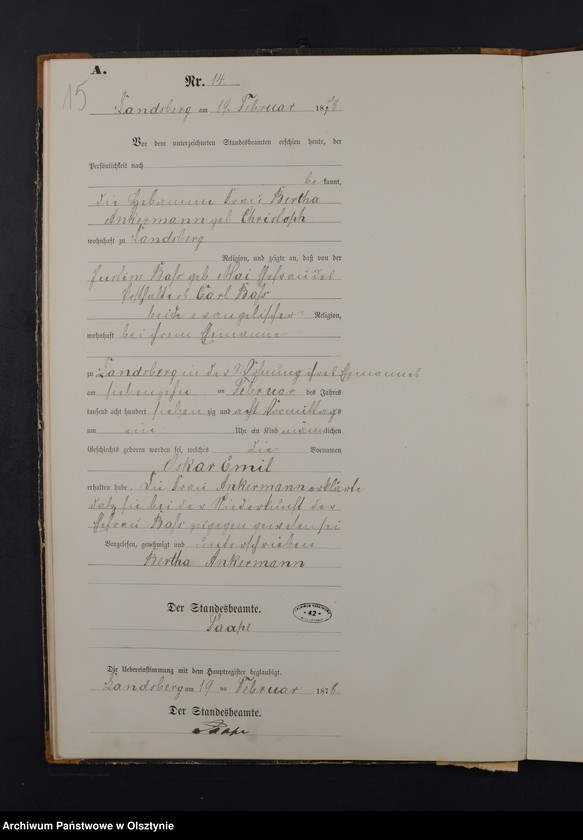 A.
15
Nr. 14.
Landsberg am 19. Februar 1878
Vor dem unterzeichneten Standesbeamten erschien heute, der
Persönlichkeit nach
be kannt,
die Hebamme Frau Bertha
Ankermann geb Christoph
wohnhaft zu Landsberg
Religion, und zeigte an, daß von der
geb Mai Ehefrau des
Carl
beide evangelischer Religion,
wohnhaft bei ihrem Ehemanne
zu Landsberg in der Wohnung ihres Ehemannes
am siebenzehn ten Februar des Jahres
tausend acht hundert sieben zig und acht Vormittags
um ein Uhr ein Kind männlichen
Geschlechts geboren worden sei, welches die Vornamen
Oskar Emil
erhalten habe. Die Frau Ankermann erklärte
daß sie bei der Niederkunft der
Ehefrau zugegen gewesen sei
Vorgelesen, genehmigt und unterschrieben
Bertha Ankermann
Der Standesbeamte.
42
Die Uebereinstimmung mit dem Hauptregister beglaubigt.
Landsberg am 19 ten Februar 1878
Der Standesbeamte.
Archiwum Państwowe w Olsztynie